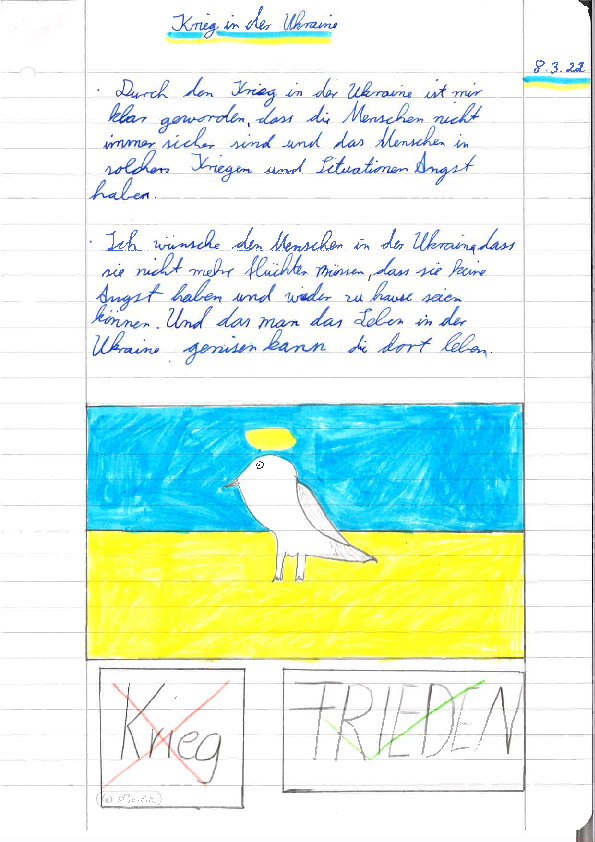 Krieg in der Ukraine
8.3.22
· Durch den Krieg in der Ukraine ist mir
klar geworden, dass die Menschen nicht
immer sicher sind und das Menschen in
solchen Kriegen und Situationen Angst
haben.
· Ich wünsche den Menschen in der Ukraine, dass
sie nicht mehr flüchten müssen, dass sie keine
Angst haben und wieder zu hause seien
können. Und das man das Leben in der
Ukraine genisen kann die dort leben.
Krieg
FRIEDEN